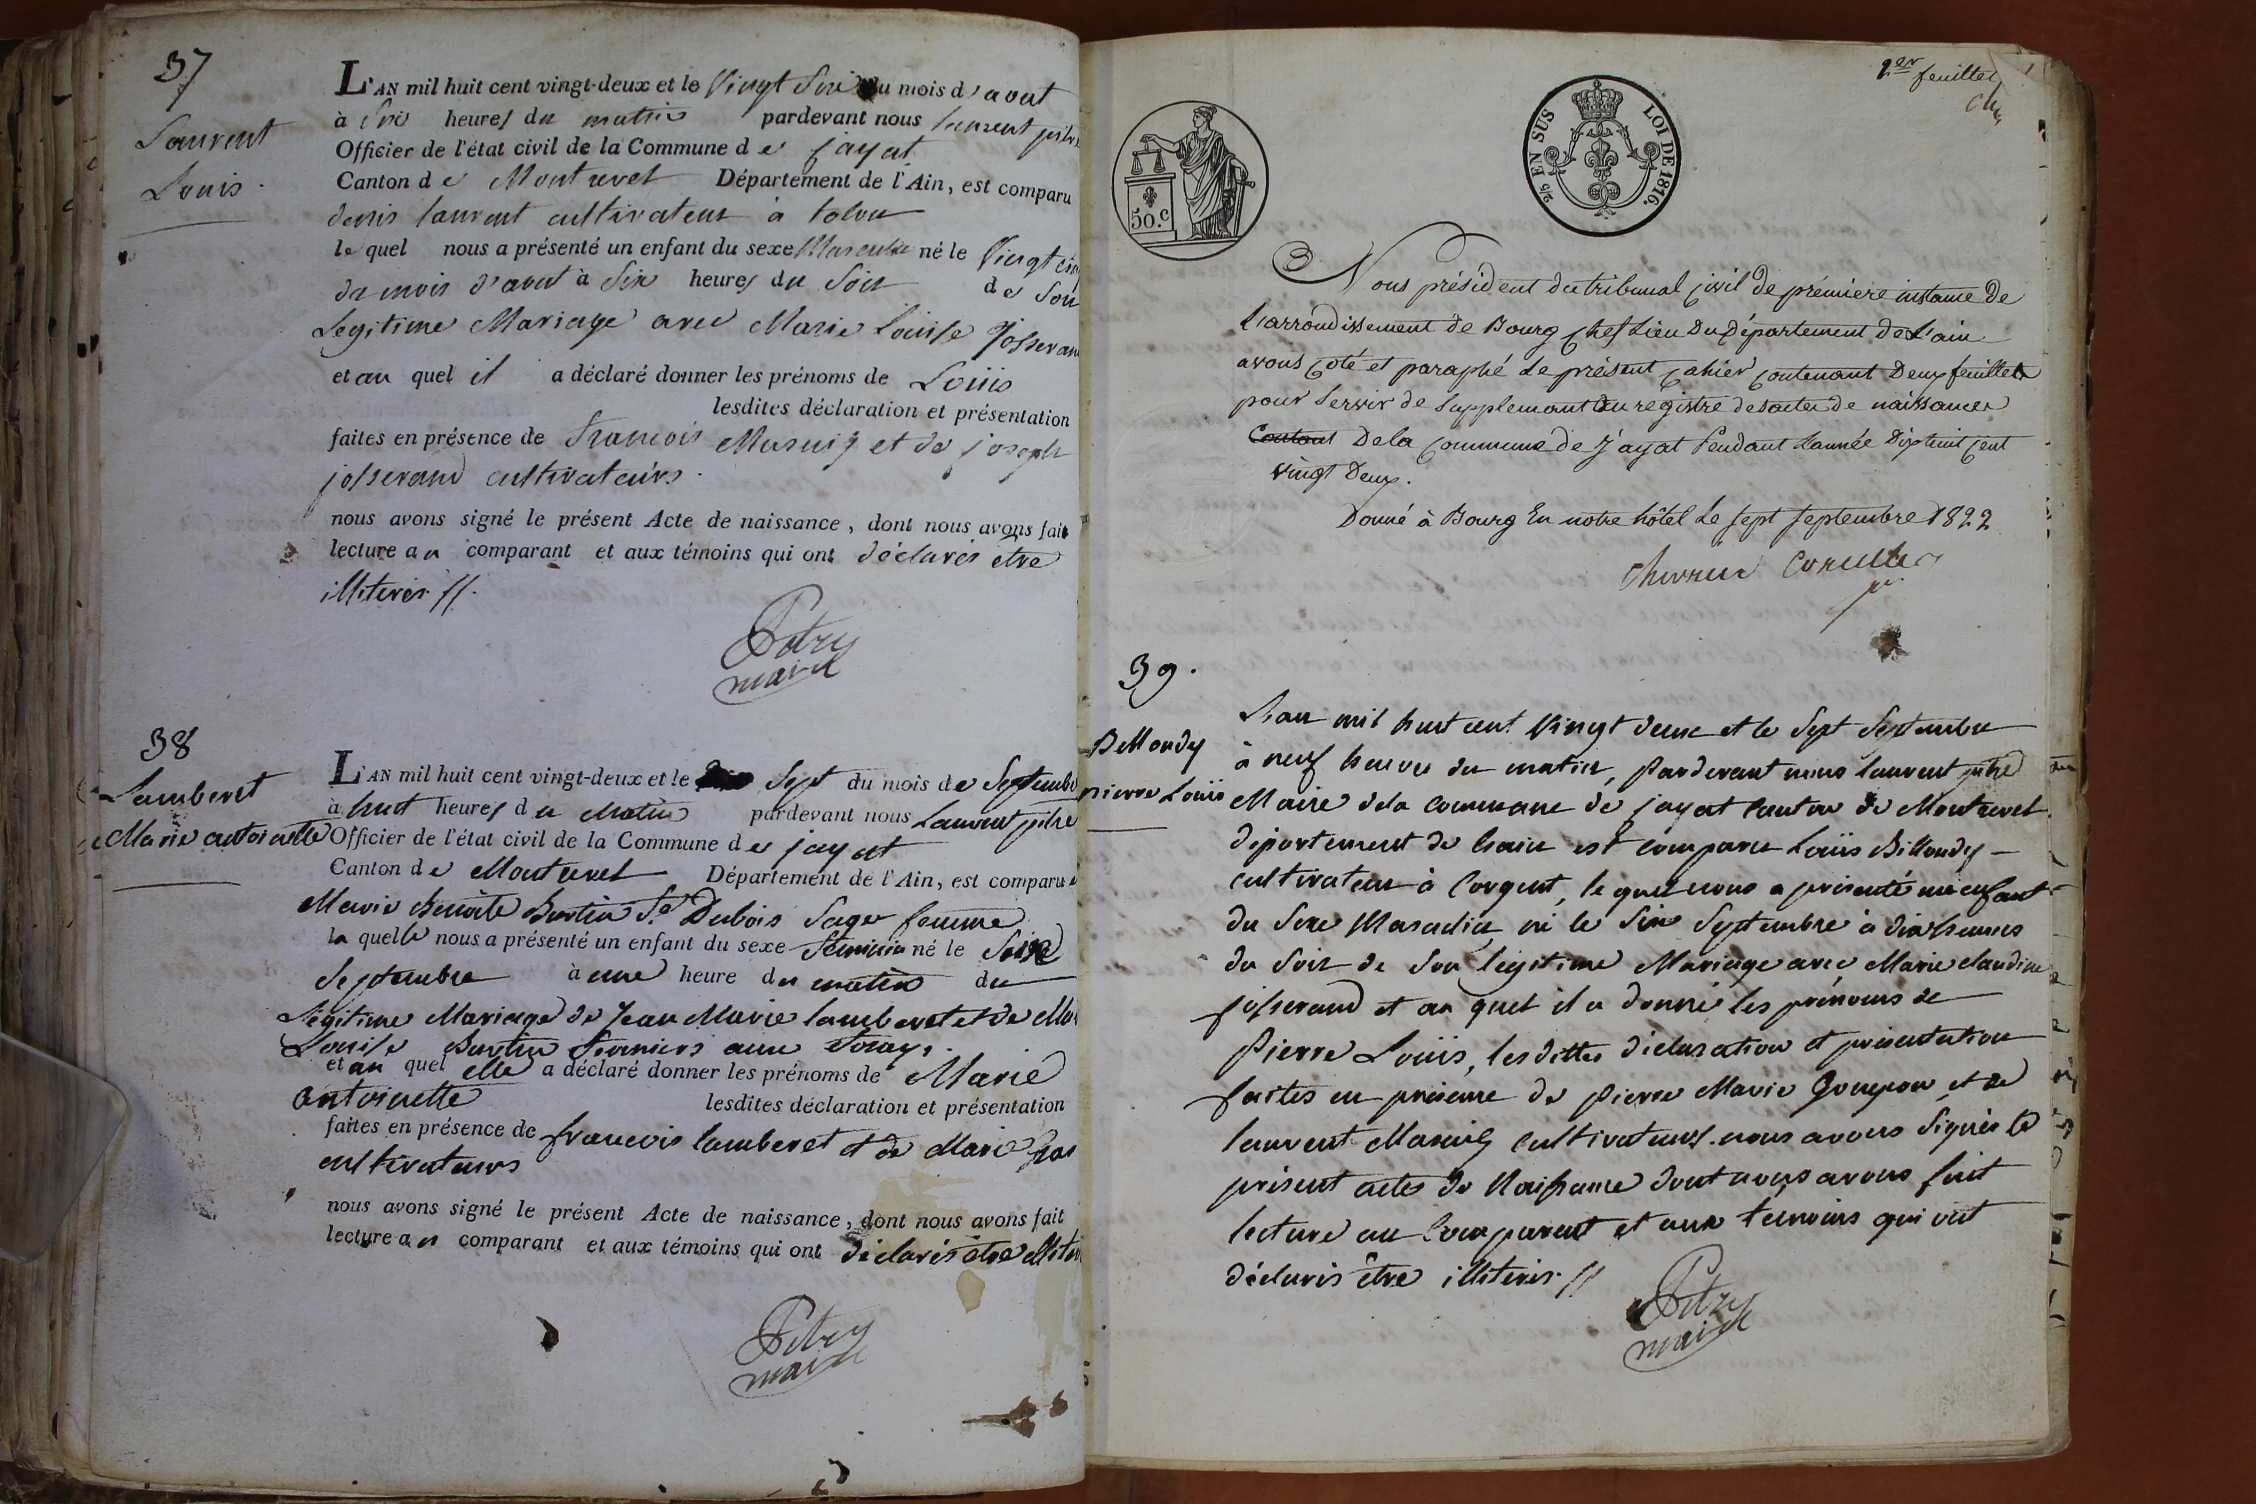 37
Laurent
Louis.
L'AN mil huit cent vingt-deux et le Vingt Six du mois d'avout
à Six heures du matin pardevant nous Laurent pitre
Officier de l'état civil de la Commune de jayat
Canton de Montrevel Département de l'Ain, est comparu
denis laurent cultivateur à
le quel nous a présenté un enfant du sexe Masculin né le Vingt cin
du mois d'avout à Six heures du Soir de Son
Legitime Mariage avec Marie Louise Josseran
et au quel il a déclaré donner les prénoms de Loüis
lesdites déclaration et présentation
faites en présence de francois Masuiy et de joseph
josserand cultivateurs.
nous avons signé le présent Acte de naissance, dont nous avons fait
lecture au comparant et aux témoins qui ont déclarés etre
illiterés //.
Pitre
maire
38
Lamberet
Marie antoinette
L'AN mil huit cent vingt-deux et le Sept du mois de Septembre
à huit heures du Matin pardevant nous Laurent pitre
Officier de l'état civil de la Commune de jayat
Canton de Montrevel Département de l'Ain, est comparu
Marie Benoite Burtin fe Dubois Sage femme
la quelle nous a présenté un enfant du sexe feminin né le
Septembre à une heure du matin du
Legitime Mariage de Jean Marie lamberet et de Mar
Louise Burtin fermiers aux
et au quel elle a déclaré donner les prénoms de Marie
antoinette lesdites déclaration et présentation
faites en présence de francois lamberet et de Marie
cultivateurs
nous avons signé le présent Acte de naissance, dont nous avons fait
lecture au comparant et aux témoins qui ont déclarés etre illiter
Pitre
maire
1er feuillet
50.c
2/5 EN SUS LOI DE 1816.
Nous président du tribunal civil de première instance de
L'arrondissement de Bourg Chef Lieu Du Département de L'ain
avons coté et paraphé Le présent cahier contenant Deux feuillets
pour servir de Supplemant au registre des actes de naissances
De la Commune de Jayat Pendant L'année Dixhuit cent
vingt Deux.
Donné à Bourg En notre hôtel Le sept septembre 1822
39.
Billoudy
pierre Loüis
L'an mil huit cent Vingt deux et le Sept Septembre
à neuf heures du matin, pardevant nous laurent pitre
Maire de la commune de jayat canton de Montrevel
département de l'ain est comparu Loüis Billoudy
cultivateur à Corgent, le quel nous a présenté un enfant
du Sexe Masculin, né le Six Septembre à dix heures
du Soir de Son légitime Mariage avec Marie claudine
josserand et au quel il a donné les prénoms de
Pierre Loüis, les dittes déclaration et présentation
faites en présence de pierre Marie Goujeon et de
laurent Masuiy cultivateurs. nous avons signés le
présent actes de Naissance dont nous avons fait
lecture au comparant et aux temoins qui ont
déclarés être illiterés. //
Pitre
maire